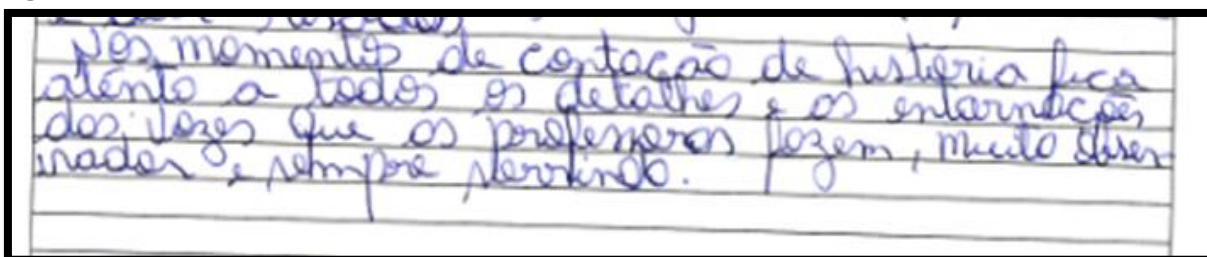 Nos momentos de contação de história fica
atento a todos os detalhes e as entornações
das vozes que os professores fazem, muito obser
vador e sempre sorrindo.